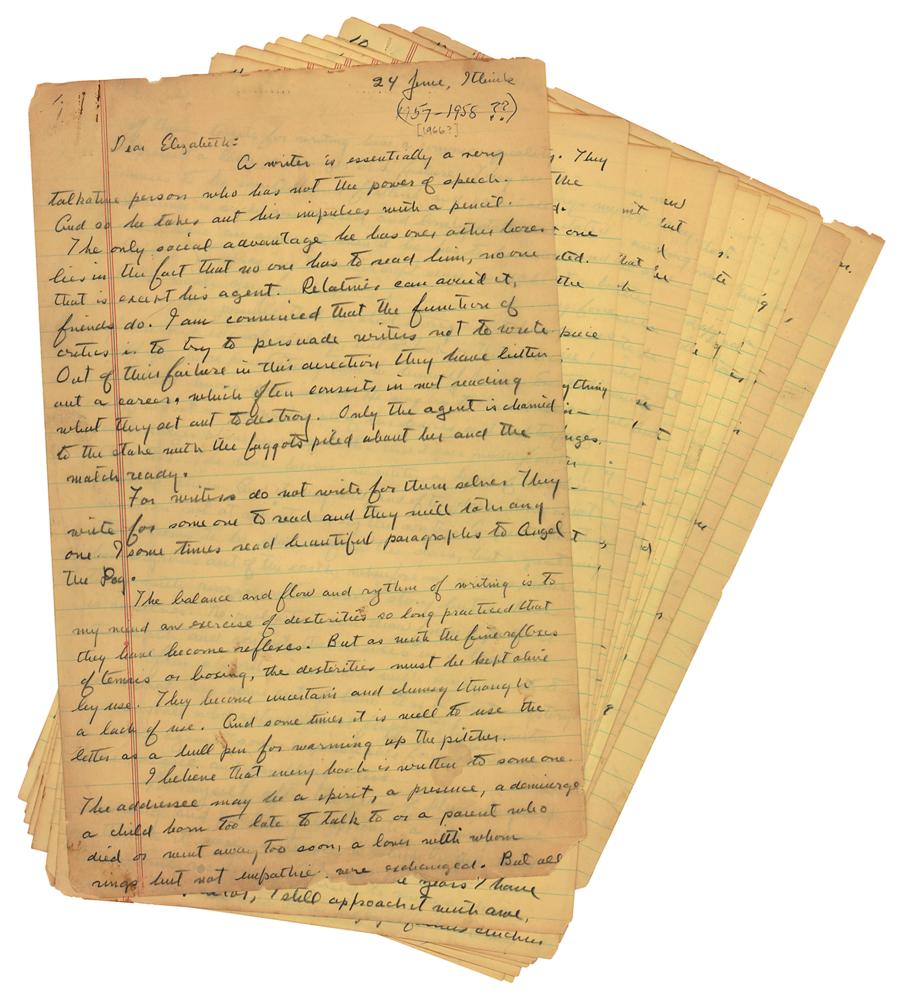 24 June, I think
(1957-1958 ??)
[1966?]
Dear Elizabeth:
A writer is essentially a very
talkative person who has not the power of speech.
And so he takes out his impulses with a pencil.
The only social advantage he has over other bores
lies in the fact that no one has to read him, no one
that is except his agent. Relatives can avoid it,
friends do. I am convinced that the function of
critics is to try to persuade writers not to write.
Out of their failure in this direction they have bitten
out a career, which often consists in not reading
what they set out to destroy. Only the agent is chained
to the stake with the faggots piled about her and the
match ready.
For writers do not write for them selves. They
write for some one to read and they will take any
one. I some times read beautiful paragraphs to Angel
the Dog.
The balance and flow and rythm of writing is to
my mind an exercise of dexterities so long practiced that
they have become reflexes. But as with the fine reflexes
of tennis or boxing, the dexterities must be kept alive
by use. They become uncertain and clumsy through
a lack of use. And some times it is well to use the
letter as a bull pen for warming up the pitcher.
I believe that every book is written to some one.
The addressee may be a spirit, a presence, a demiurge
a child born too late to talk to or a parent who
died or went away too soon, a lover with whom
rings but not empathies were exchanged. But all
years I have
I still approach it with awe,
They
the
one
the
pace